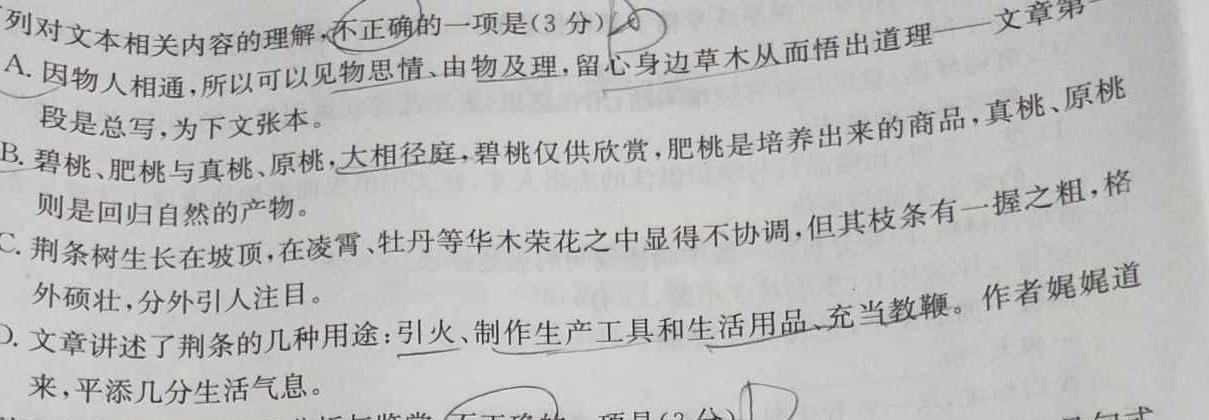 列对文本相关内容的理解,不正确的一项是(3分)
A. 因物人相通,所以可以见物思情、由物及理,留心身边草木从而悟出道理——文章第一
段是总写,为下文张本。
B. 碧桃、肥桃与真桃、原桃,大相径庭,碧桃仅供欣赏,肥桃是培养出来的商品,真桃、原桃
则是回归自然的产物。
C. 荆条树生长在坡顶,在凌霄、牡丹等华木荣花之中显得不协调,但其枝条有一握之粗,格
外硕壮,分外引人注目。
D. 文章讲述了荆条的几种用途:引火、制作生产工具和生活用品、充当教鞭。作者娓娓道
来,平添几分生活气息。